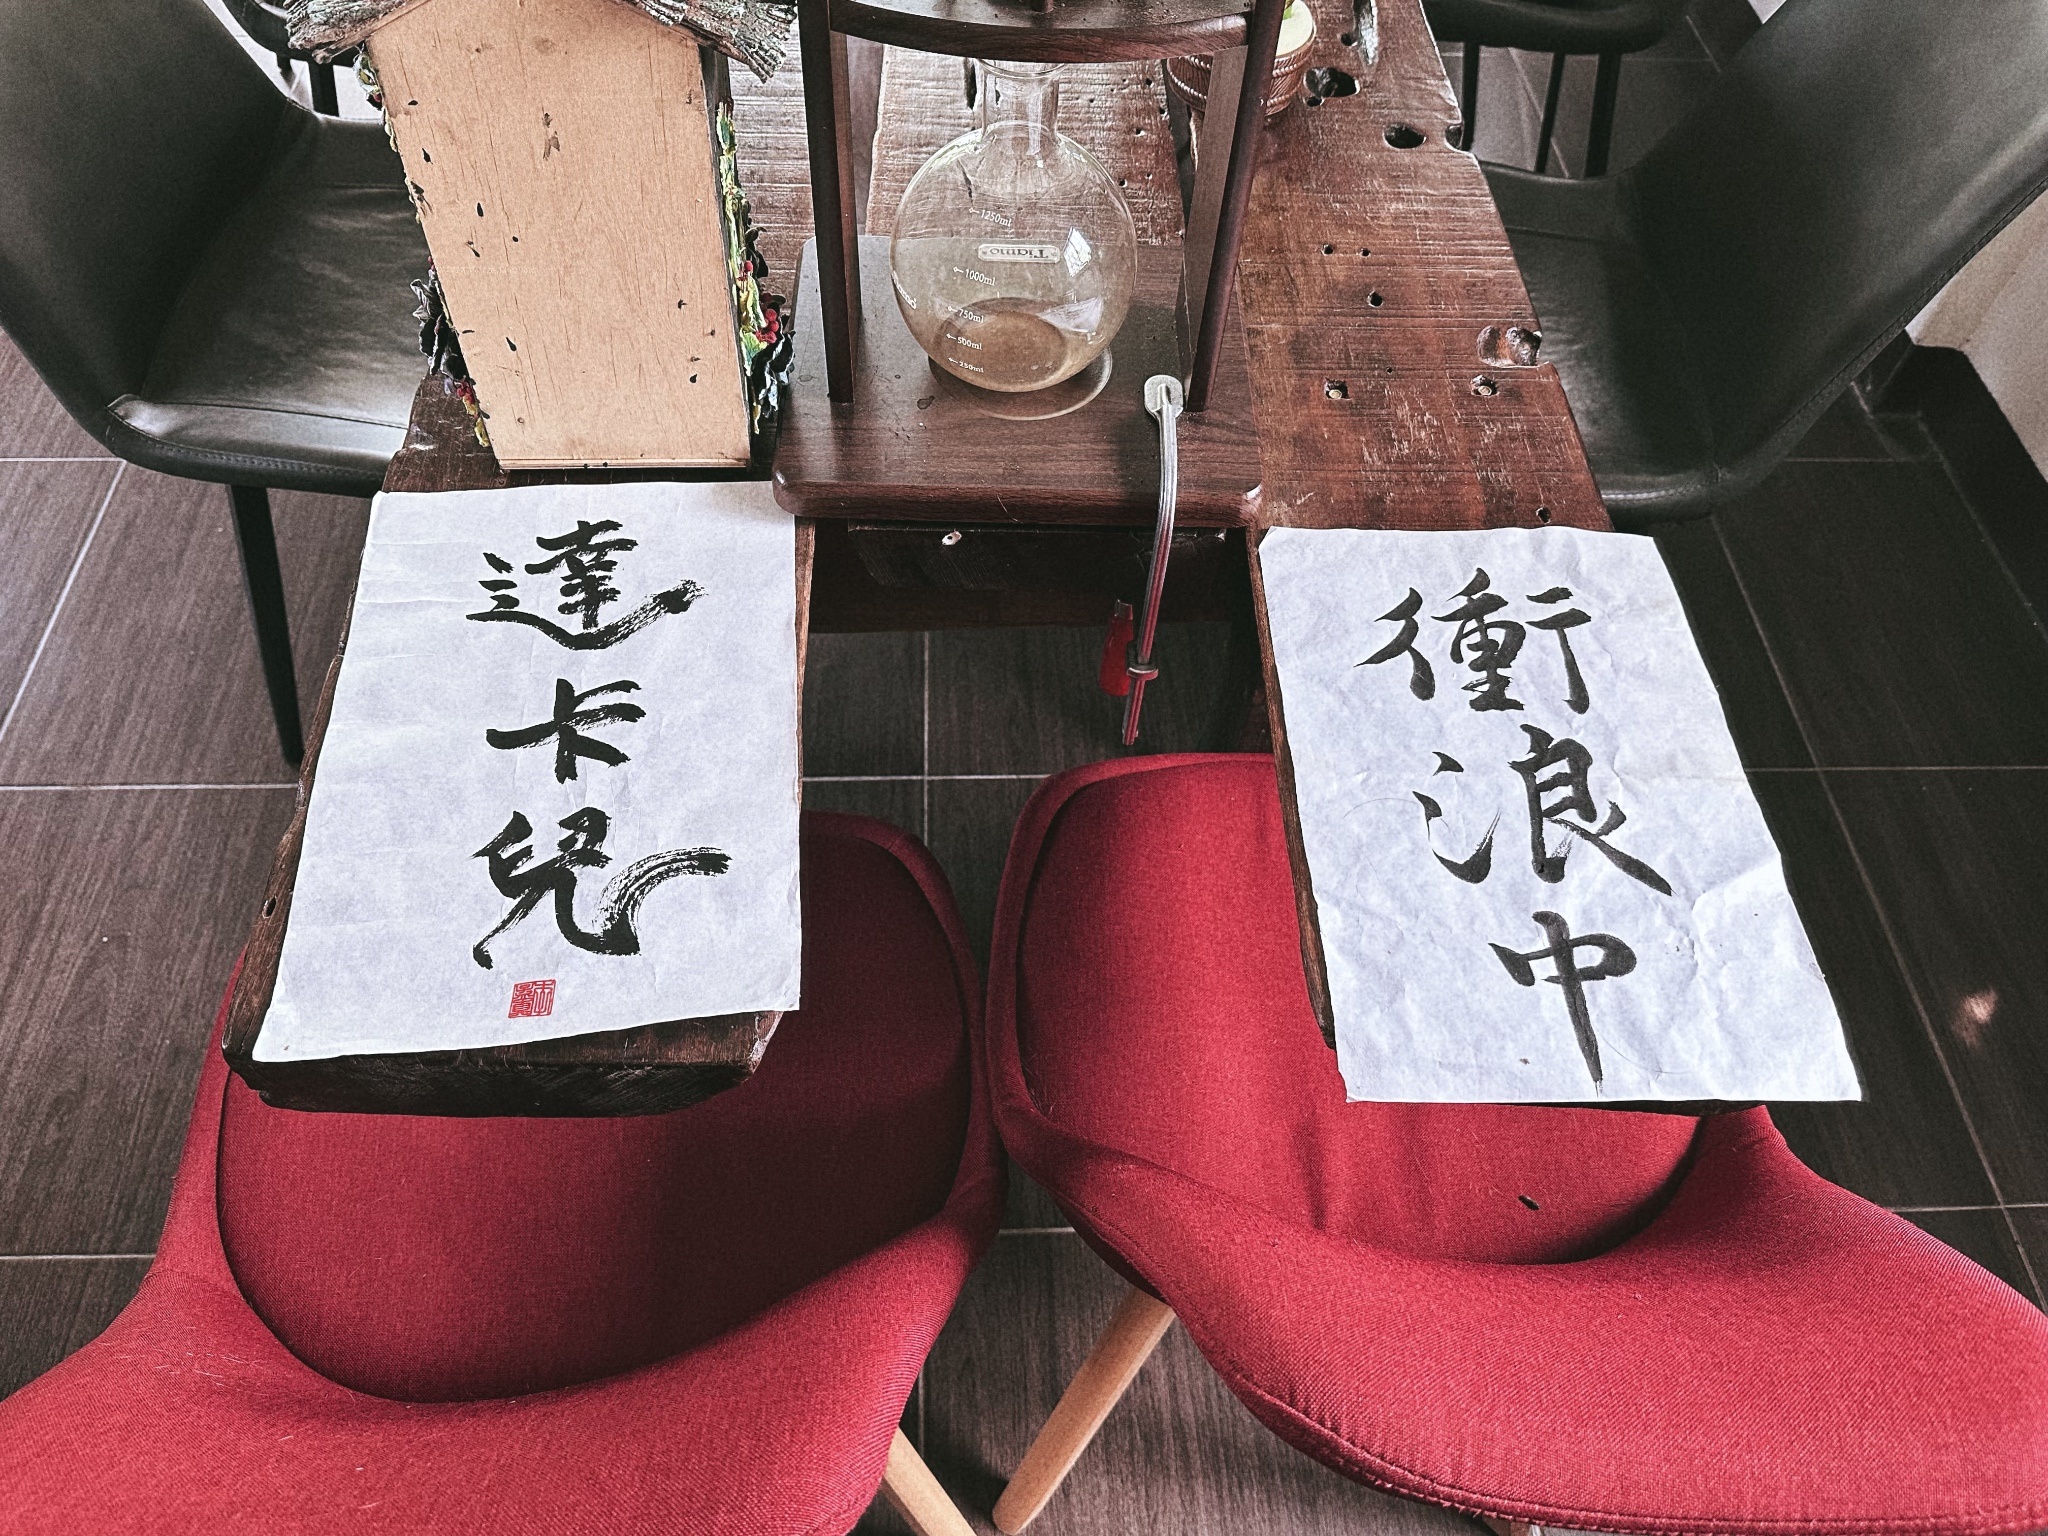 達卡兒
衝浪中
1250ml
Tiamo
1000ml
750ml
500ml
250ml